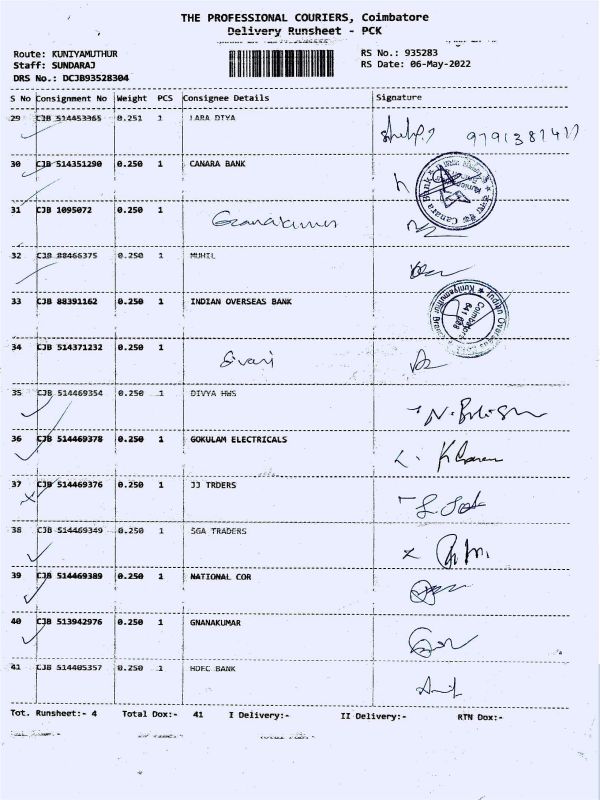 THE PROFESSIONAL COURIERS, Coimbatore
Delivery Runsheet - PCK
Route: KUNIYAMUTHUR
RS No.: 935283
Staff: SUNDARAJ
RS Date: 06-May-2022
DRS No.: DCJB93528304
S No Consignment No Weight PCS Consignee Details Signature
29 CJB 514453365 0.251 1 LARA DIYA 9791381417
30 CJB 514351290 0.250 1 CANARA BANK
Canara Bank
31 CJB 1095072 0.250 1 Gnanakumar
32 CJB 88466375 0.250 1 MUHIL
33 CJB 88391162 0.250 1 INDIAN OVERSEAS BANK
Coimbatore
34 CJB 514371232 0.250 1 Sivani
35 CJB 514469354 0.250 1 DIVYA HWS
36 CJB 514469378 0.250 1 GOKULAM ELECTRICALS
37 CJB 514469376 0.250 1 JJ TRDERS
38 CJB 514469349 0.250 1 SGA TRADERS
39 CJB 514469389 0.250 1 NATIONAL COR
40 CJB 513942976 0.250 1 GNANAKUMAR
41 CJB 514405357 0.250 1 HDFC BANK
Tot. Runsheet:- 4 Total Dox:- 41 I Delivery:- II Delivery:- RTN Dox:-